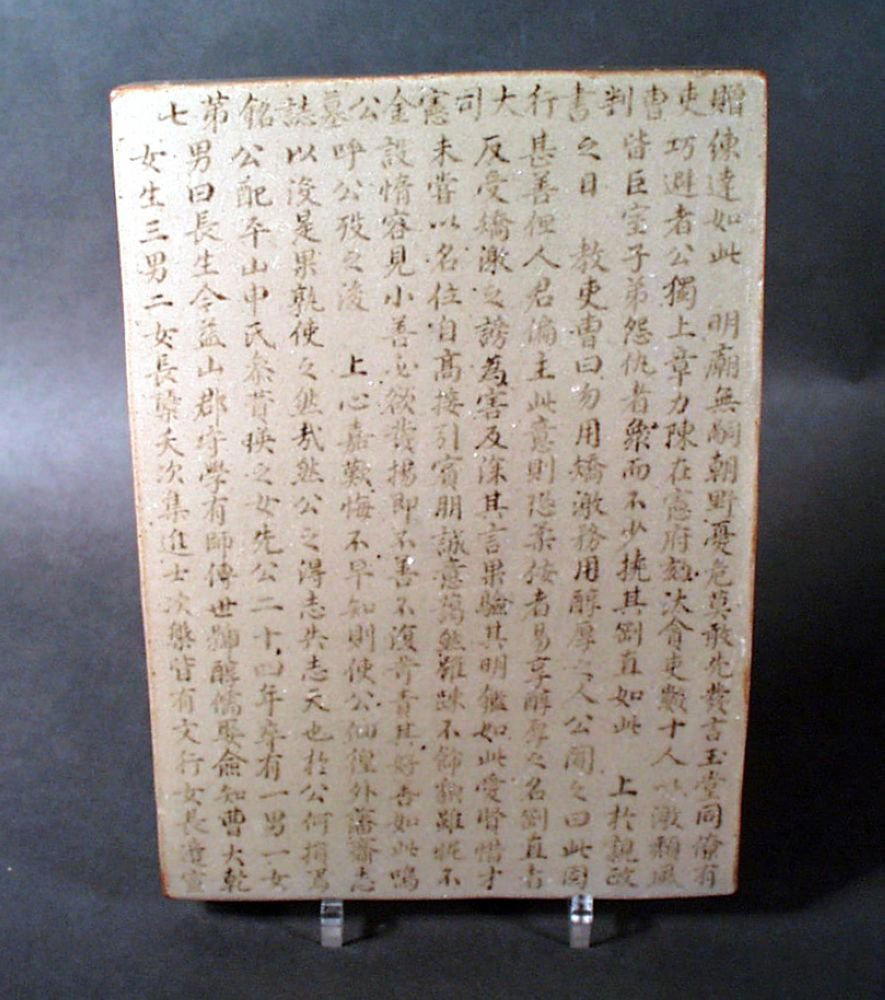 贈吏曹判書行大司憲金公墓誌銘第七
練達如此　明廟無嗣朝野憂危莫敢先發言玉堂同僚有
巧避者公獨上章力陳在憲府劾汰貪吏數十人以激頹風
皆巨室子弟怨仇者衆而不少撓其剛直如此　上於親政
之日　教吏曹曰勿用矯激務用醇厚之人公聞之曰此固
甚善但人君偏主此意則恐柔佞者易享醇厚之名剛直者
反受矯激之謗爲害反深其言果驗其明鑑如此愛賢惜才
未嘗以名位自高接引賓朋誠意藹然雖踈不飾貌雖昵不
設惰容見小善必欲發揚卽不善不復苛責其好善如此嗚
呼公歿之後　上心嘉歎悔不早知則使公佪徨外藩齎志
以沒是果孰使之然哉然公之得志失志天也於公何損焉
公配平山申氏參贊瑛之女先公二十四年卒有一男一女
男曰長生令益山郡守學有師傳世稱醇儒娶僉知曹大乾
女生三男二女長檃夭次集進士次槃皆有文行女長適宣